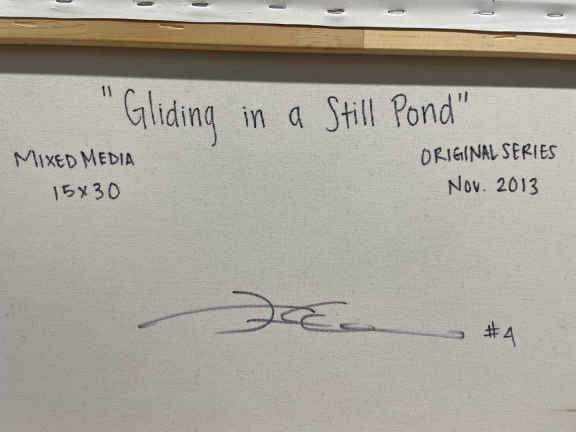 "Gliding in a Still Pond"
MIXED MEDIA
15x30
ORIGINAL SERIES
Nov. 2013
#4